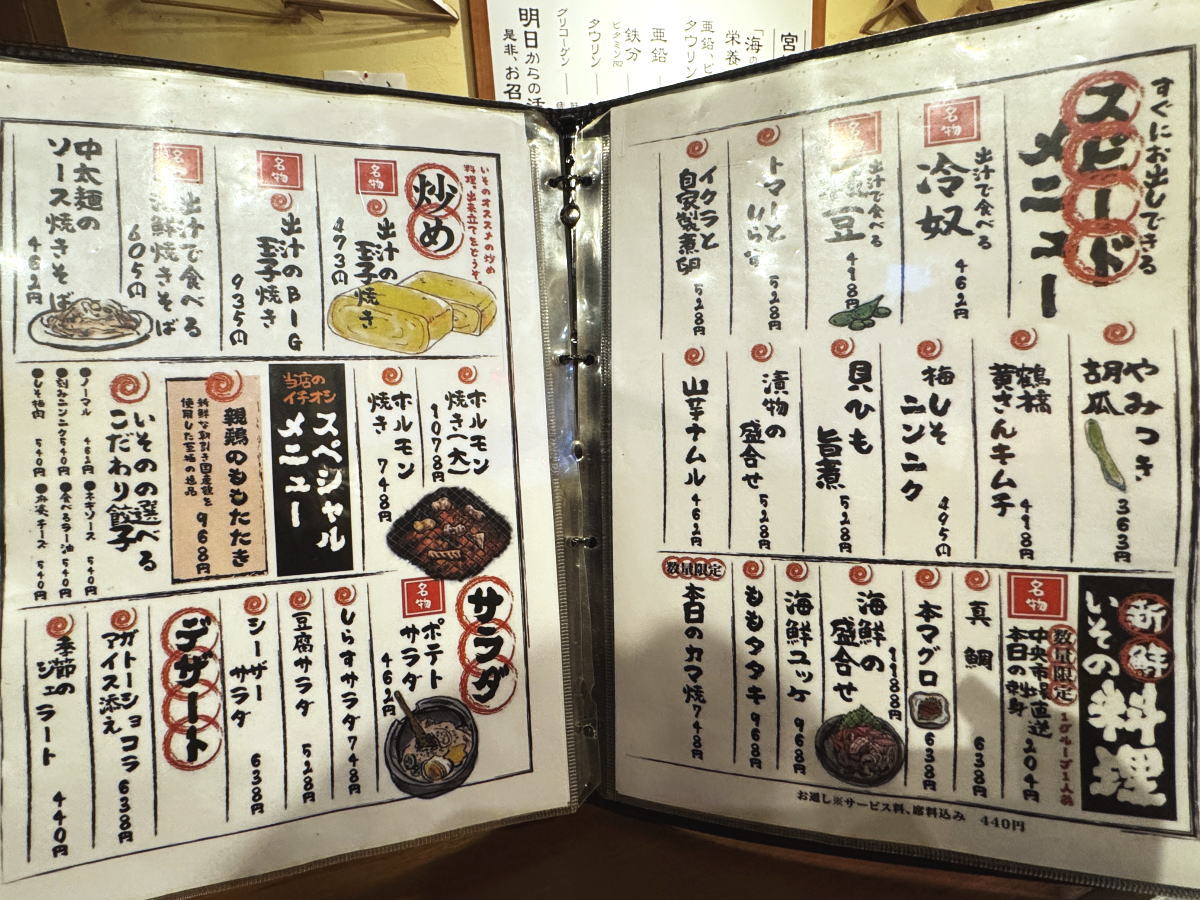 宮
「海の
栄養
亜鉛、ビ
タウリン
亜鉛
鉄分
ビタミンB12
タウリン
グリコーゲン
明日からの活
是非、お召
すぐにお出しできる
スピード
メニュー
名物
出汁で食べる
冷奴
462円
出汁で食べる
豆
418円
トマトと
528円
イクラと
自家製煮卵
528円
やみつき
胡瓜
363円
鶴橋
黄さんキムチ
418円
梅しそ
ニンニク
495円
貝ひも
旨煮
528円
漬物の
盛合せ
528円
山芋ナムル
462円
新鮮
いその料理
名物
数量限定
1グループ1人前
中央市場直送
本日の刺身
204円
真鯛
638円
本マグロ
638円
海鮮の
盛合せ
1988円
海鮮ユッケ
968円
ももタタキ
968円
数量限定
本日のカマ焼
748円
お通し※サービス料、席料込み 440円
いそのオススメの炒め
料理、出来立てをどうぞ。
炒め
名物
出汁の
玉子焼き
473円
名物
出汁のBIG
玉子焼き
935円
名物
出汁で食べる
海鮮焼きそば
605円
中太麺の
ソース焼きそば
462円
ホルモン
焼き(大)
1078円
ホルモン
焼き
748円
当店の
イチオシ
スペシャル
メニュー
親鶏のももたたき
968円
新鮮な朝引き国産鶏を
使用した至極の逸品
いその選べる
こだわり餃子
●ノーマル 462円
●ネギソース 540円
●刻みニンニク 540円
●食べるラー油 540円
●しそ梅肉 540円
●麻婆チーズ 540円
サラダ
名物
ポテト
サラダ
462円
しらすサラダ
748円
豆腐サラダ
528円
シーザー
サラダ
638円
デザート
ガトーショコラ
アイス添え
638円
季節の
ジェラート
440円